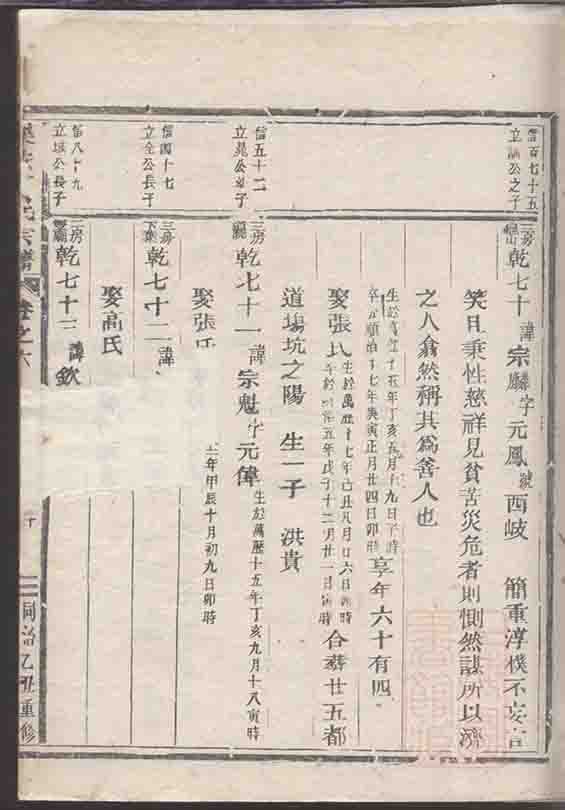 信百七十五
立 公之子
三房 乾七十 諱宗麟字元鳳號西岐 簡重淳樸不妄言
笑且秉性慈祥見貧苦災危者則惻然謀所以濟
之人翕然稱其為善人也
生於萬曆十五年丁亥五月十九日子時
順治十七年庚寅正月廿四日卯時 享年六十有四
娶張氏 生於萬曆十七年己丑 月廿六日 時
五年戊子十二月廿一日 時 合葬廿五都
道場坑之陽 生一子 洪貴
信五十二
立 公 子
三房 乾七十一 諱宗魁字元偉 生於萬曆十五年丁亥九月十八寅時
年甲辰十月初九日卯時
娶張氏
信四十七
立全公長子
三房 乾七十二 諱
娶高氏
信八十九
立 公長子
三房 乾七十三 諱欽
宗譜 卷之六
十
同治乙丑重修